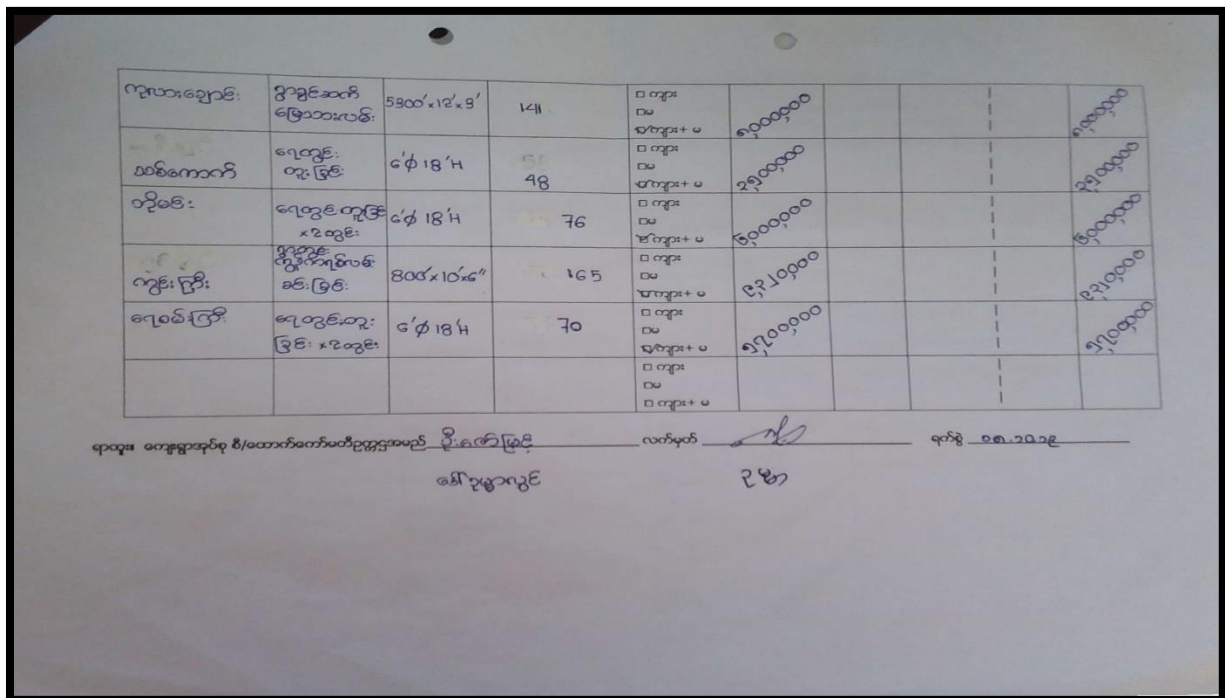 ကုလားချောင်း ရွာချင်းဆက် မြေသားလမ်း 5900'x12'x3' 141 □ ကျား □မ ☑ကျား+ မ ၈,၀၀၀,၀၀၀ ၈,၀၀၀,၀၀၀
သစ်ကောက် ရေတွင်း တူးခြင်း 6'φ 18'H 48 □ ကျား □မ ☑ကျား+ မ ၂,၅၀၀,၀၀၀ ၂,၅၀၀,၀၀၀
ရေတွင်းတူးခြင်း ×2တွင်း 6'φ 18'H 76 □ ကျား □မ ☑ကျား+ မ ၆,၀၀၀,၀၀၀ ၆,၀၀၀,၀၀၀
ကွင်းကြီး ရွာတွင်း ကွန်ကရစ်လမ်း ခင်းခြင်း 800'x10'x6" 165 □ ကျား □မ ☑ကျား+ မ ၉,၃၂၀,၀၀၀ ၉,၃၂၀,၀၀၀
ရေဝမ်းကြီး ရေတွင်းတူး ခြင်း ×2တွင်း 6'φ 18'H 70 □ ကျား □မ ☑ကျား+ မ ၅,၇၀၀,၀၀၀ ၅,၇၀၀,၀၀၀
□ ကျား □မ □ ကျား+ မ
ရာထူး၊ ကျေးရွာအုပ်စု စီ/ထောက်ကော်မတီဥက္ကဋ္ဌအမည် ဦးဇော်မြင့် လက်မှတ် ရက်စွဲ
ဒေါ်ဥမ္မာလွင် ဥမ္မာ